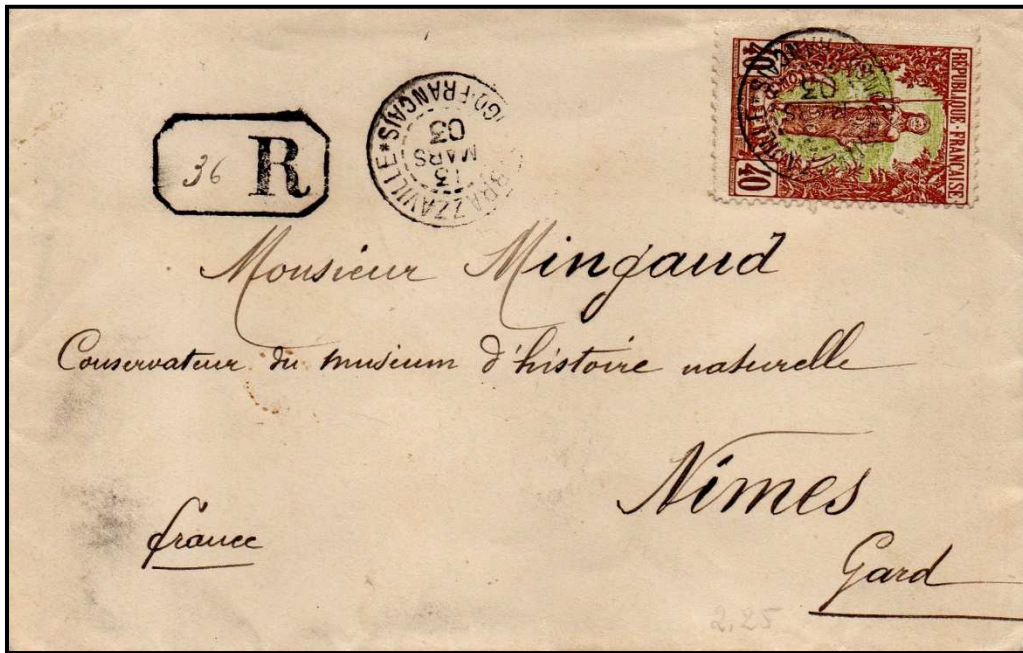 36 R
BRAZZAVILLE * GO-FRANÇAIS *
13
MARS
03
REPUBLIQUE - FRANÇAISE
40
40
03
Monsieur Mingaud
Conservateur du muséum d'histoire naturelle
Nîmes
france
Gard
2,25